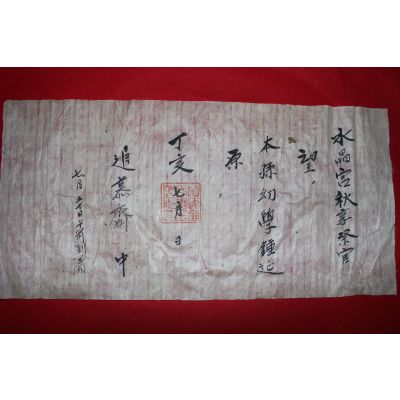 水晶宮秋享祭官
望
本孫幼學鍾
原
丁亥 七月 日
追慕齋 中
七月 二十日午前到